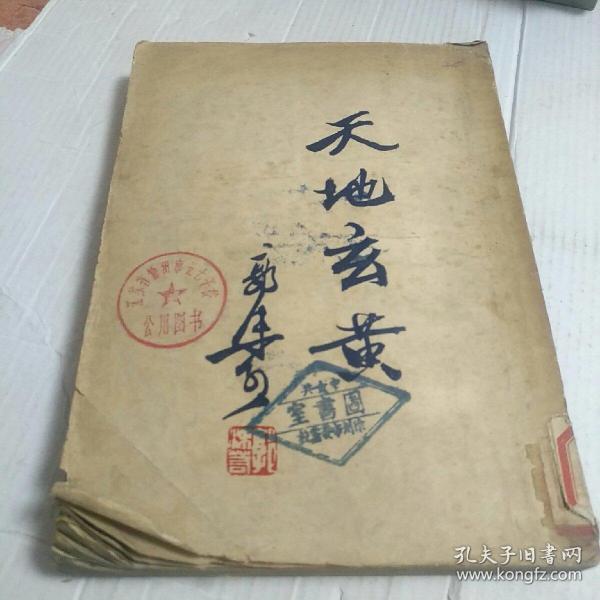 天地玄黄
郭沫若
公用图书
圖書室
孔夫子旧书网
www.kongfz.com